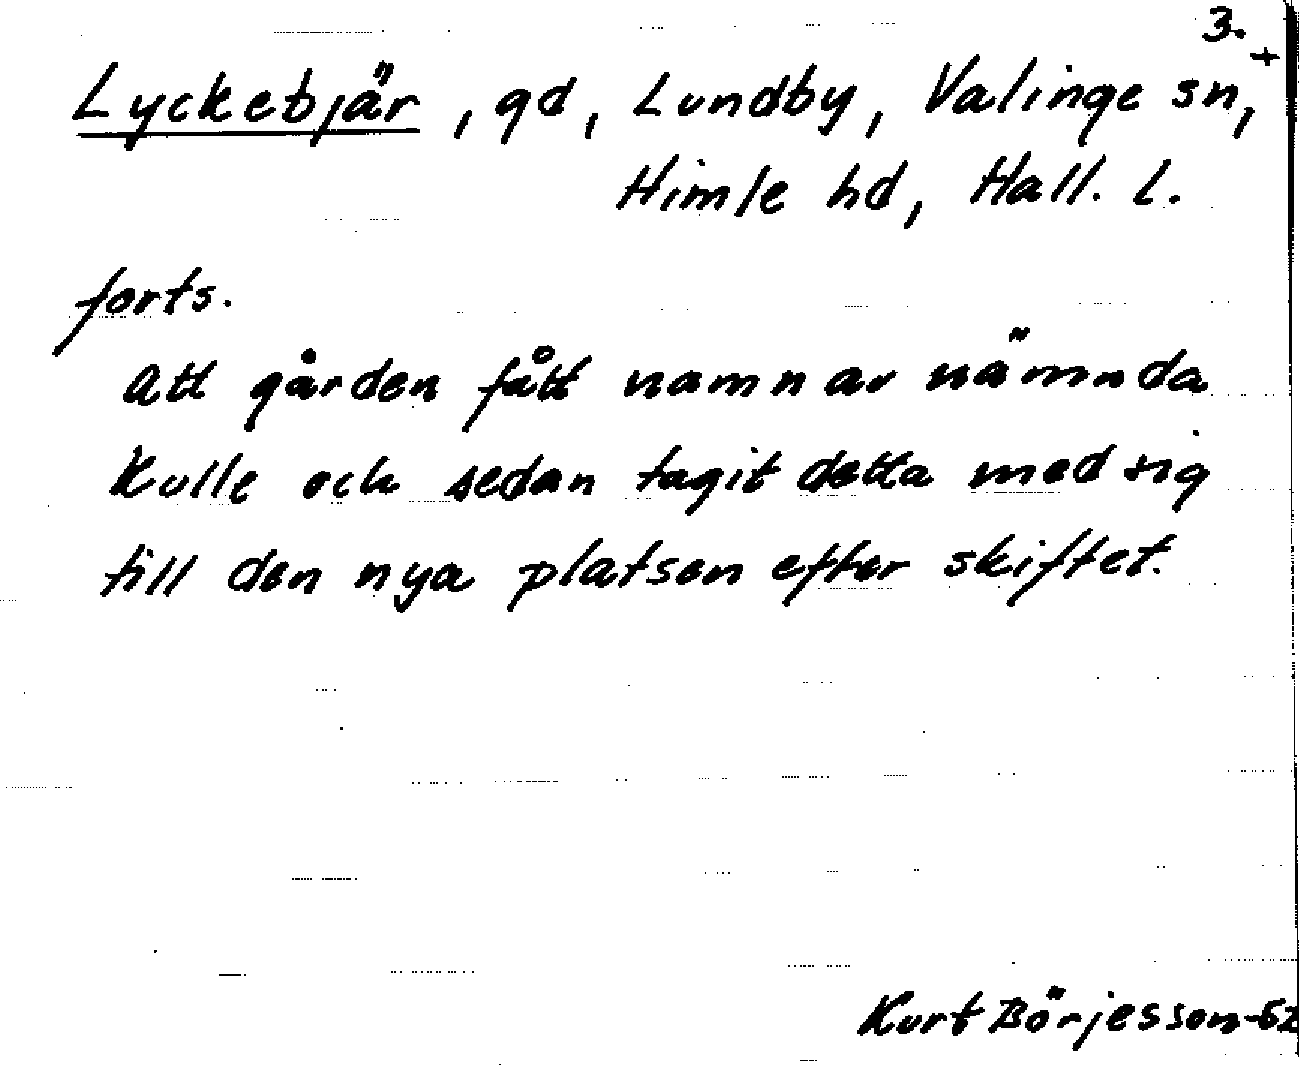 3.
+
Lyckebjär, gd, Lundby, Valinge sn,
Himle hd, Hall. l.
forts.
Att gården fått namn av nämnda
kulle och sedan tagit detta med sig
till den nya platsen efter skiftet.
Kurt Börjesson-62